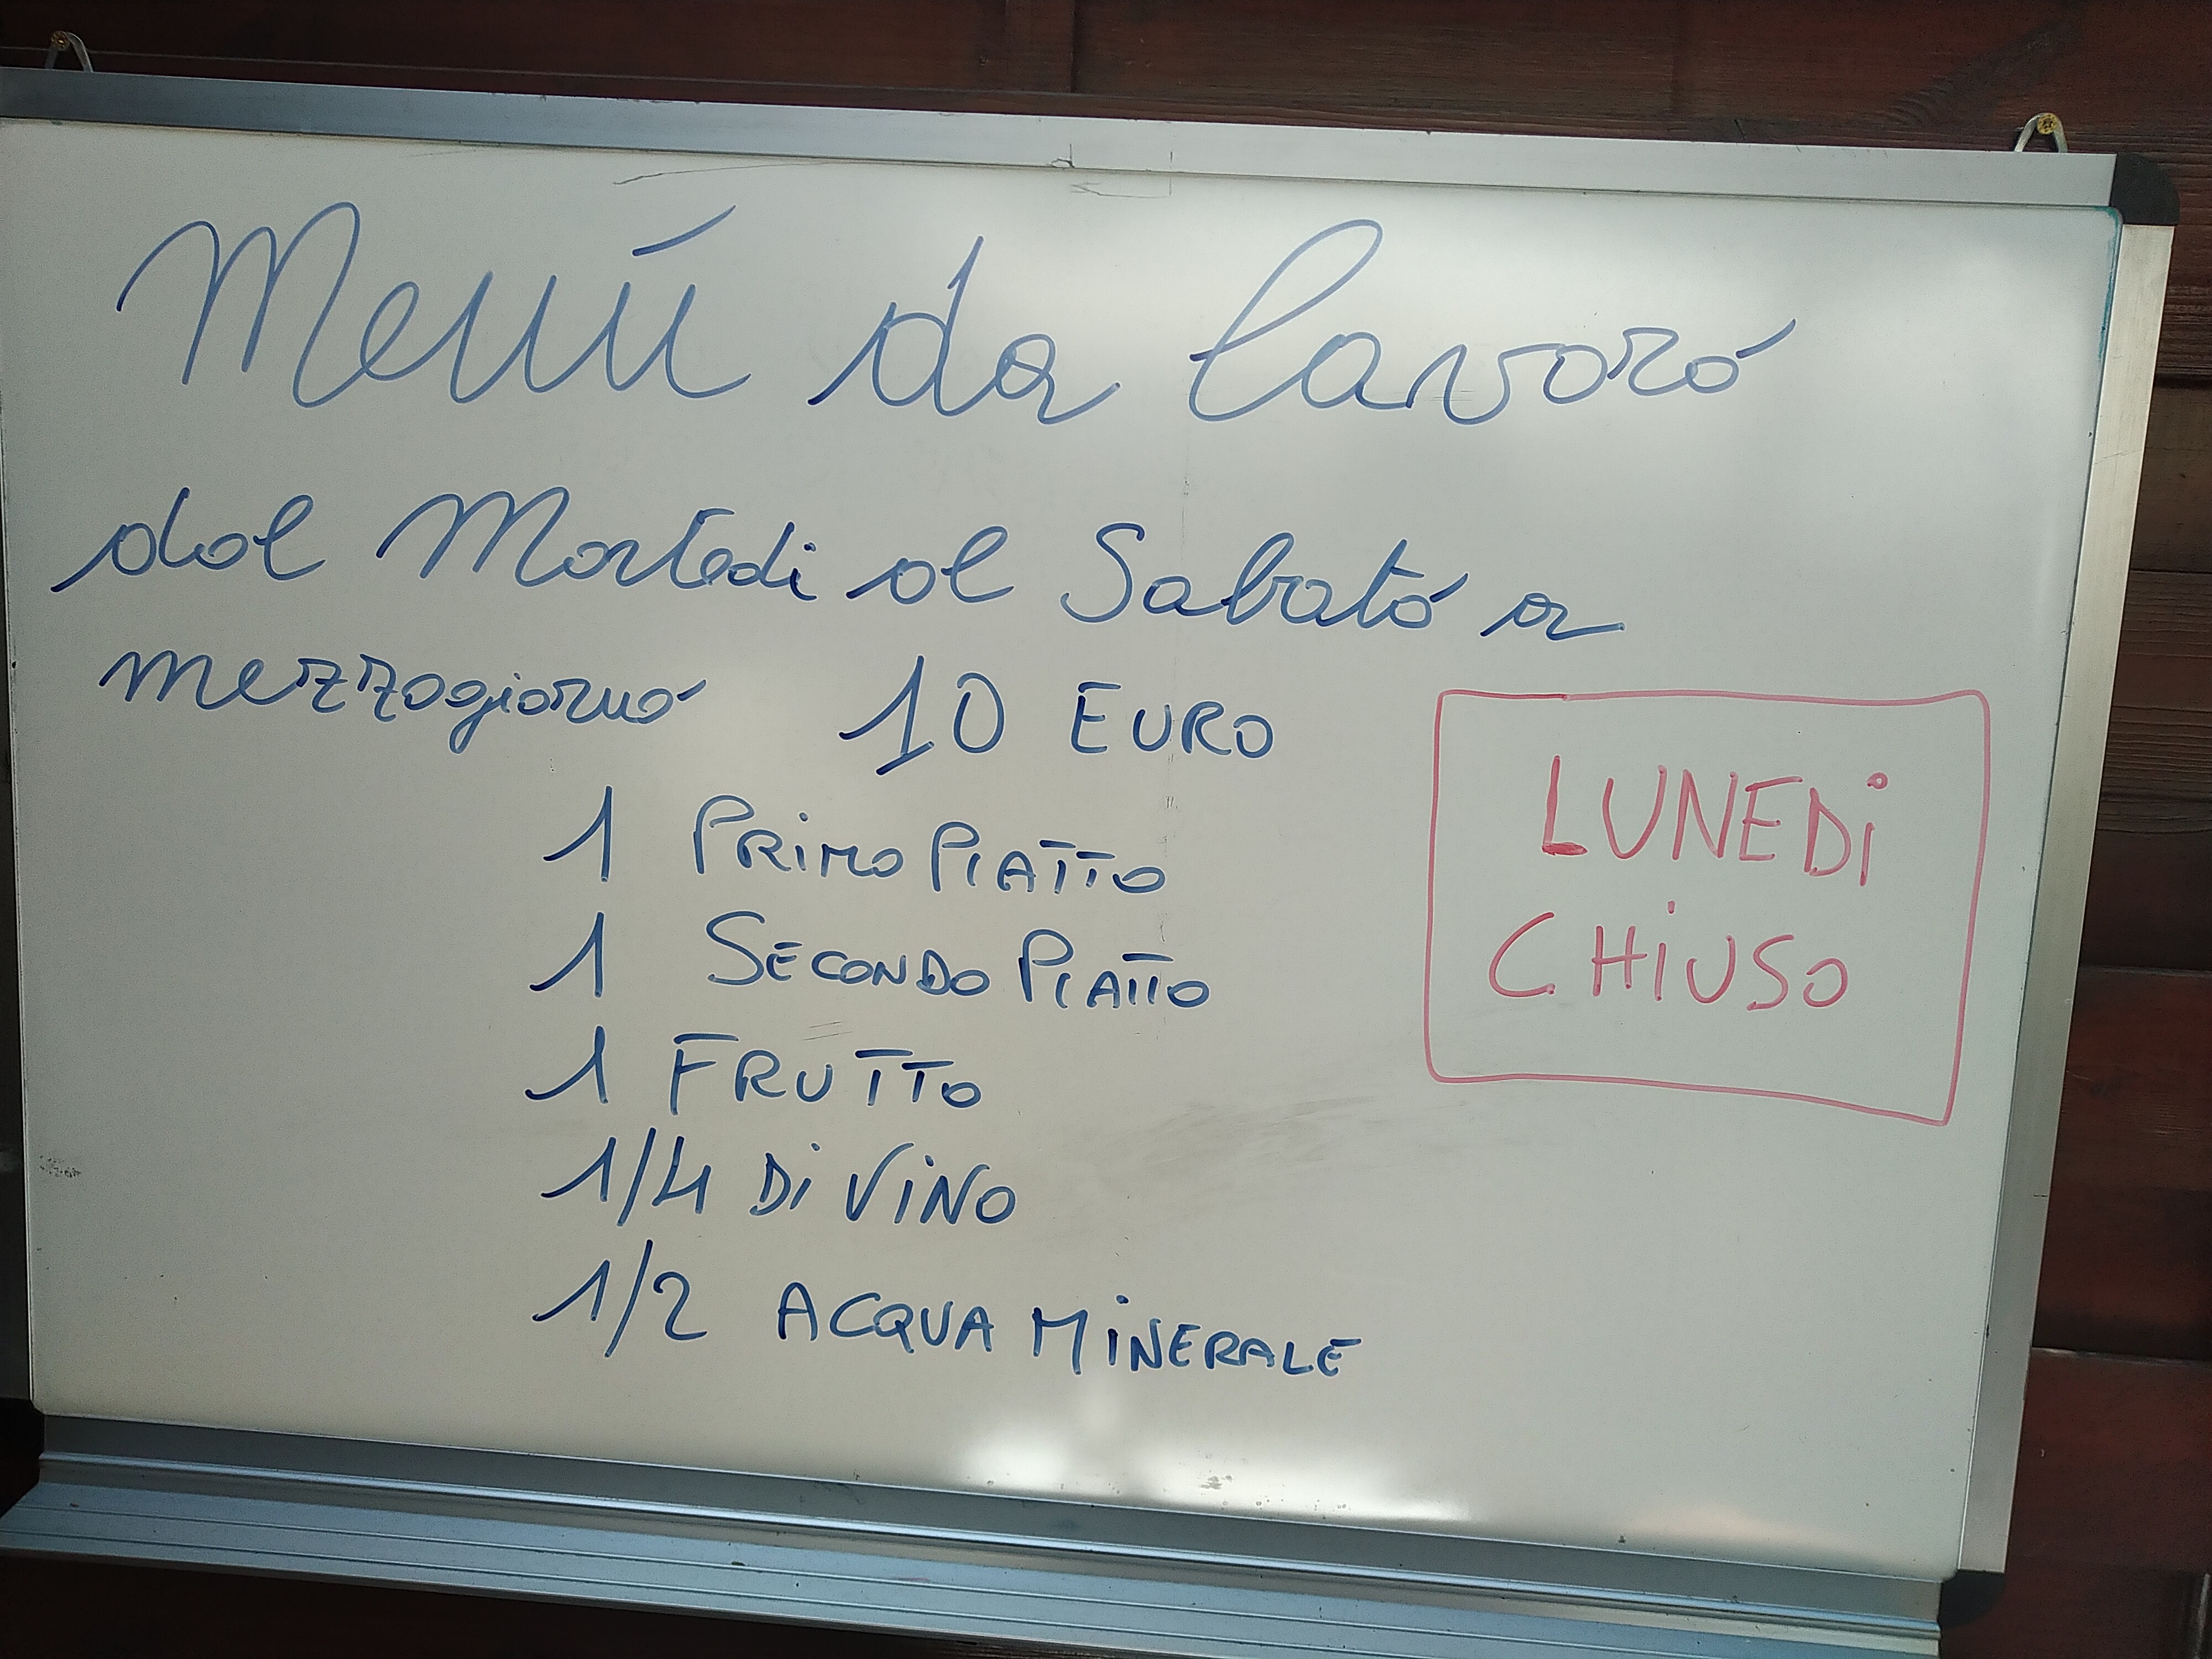 Menú da lavoro
dal Martedi al Sabato a
mezzogiorno 10 EURO
1 PRIMO PIATTO
1 SECONDO PIATTO
1 FRUTTO
1/4 Di ViNO
1/2 ACQUA MINERALE
LUNEDi
CHiUSO